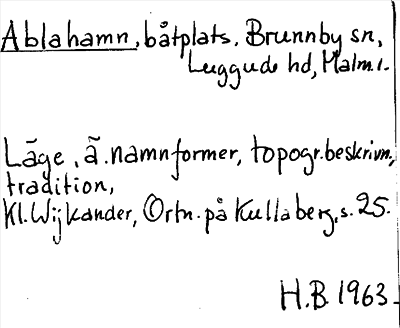 Ablahamn, båtplats. Brunnby sn,
Luggude hd, Malm.l.
Läge, ä. namnformer, topogr. beskrivn,
tradition,
Kl. Wijkander, Ortn. på Kullaberg, s. 25.
H.B. 1963.